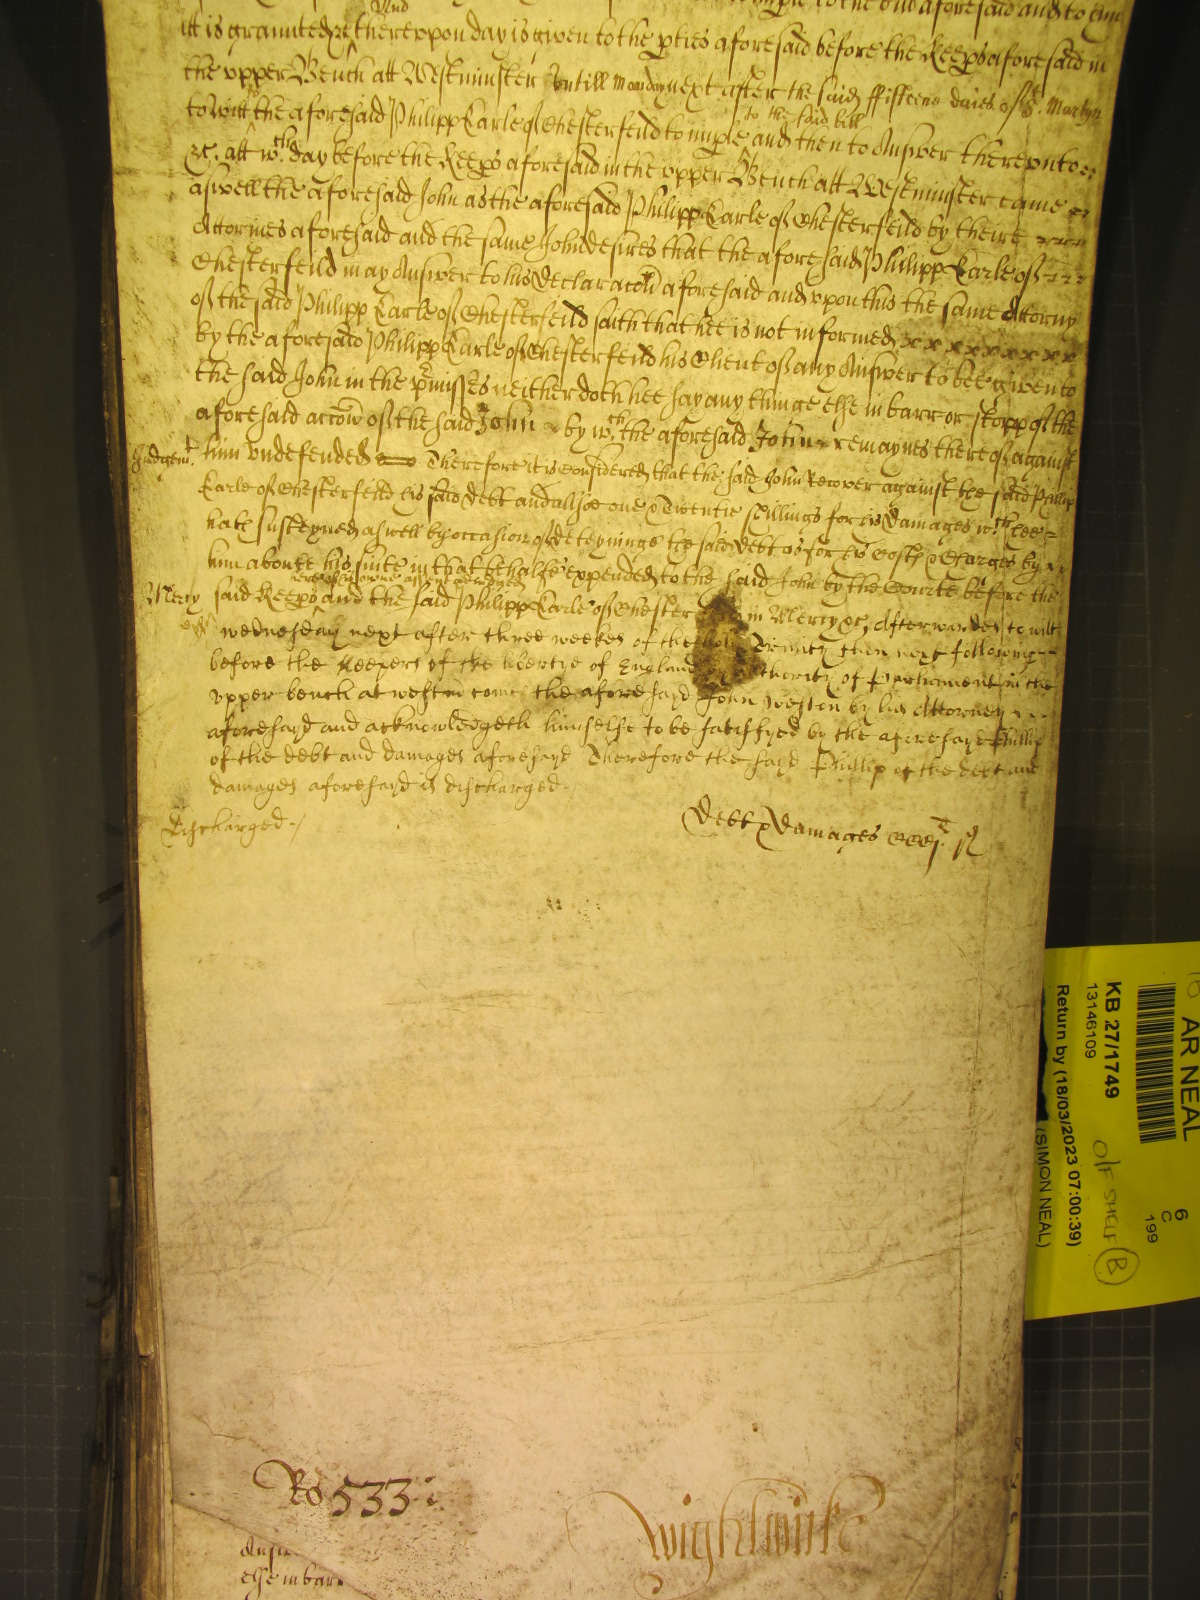 to the bill aforesaid and to him
And
itt is graunted &c thereuppon day is given to the pties aforesaid before the Keeps aforesaid in
the upper Bench att Westminster untill Monday next after the said fifteene daies of St. Martyn
to witt the aforesaid Philipp Earle of Chesterfeild to imple and then to Answer thereunto
to the said bill
&c. att wch. day before the Keeps aforesaid in the upper Bench att Westminster came
aswell the aforesaid John as the aforesaid Philipp Earle of Chesterfeild by theire
Attornies aforesaid and the same John desires that the aforesaid Philipp Earle of
Chesterfeild may Answer to his declaracon aforesaid and upon this the same Attorny
of the said Philipp Earle of Chesterfeild saith that hee is not informed
by the aforesaid Philipp Earle of Chesterfeild his Client of any Answer to bee given to
the said John in the pmisses neither doth hee say any thinge else in barr or stopp of the
aforesaid accon of the said John by wch. the aforesaid John remaynes thereof against
Judgemt. him undefended Therefore it is considered that the said John Recover against the said Philip
Earle of Chesterfeild his said debt and alsoe one & Twentie shillings for his damages wch hee
hath susteyned aswell by occasion of deteyninge the said debt as for his Costs & Charges by
him aboute his suite in that behalfe expended to the said John by the Courte before the
Mercy said Keeps and the said Philipp Earle of Chester in Mercy &c, Afterwards to witt
wednesday next after three weekes of the holy Trinity then next following
before the Keepers of the libertye of England thority of Parliament in the
upper bench at westm comes the aforesayd John weston by his Attorney
aforesayd and acknowledgeth himselfe to be satisfyed by the aforesayd Phillip
of the debt and damages aforesayd Therefore the sayd Phillip of the debt and
damages aforesayd is discharged.
Discharged
Debt & Damages
Ro 533
Wightwick
else in barr
AR NEAL
6
C
199
KB 27/1749
13146109
O/F SHELF B
Return by (18/03/2023 07:00:39)
(SIMON NEAL)